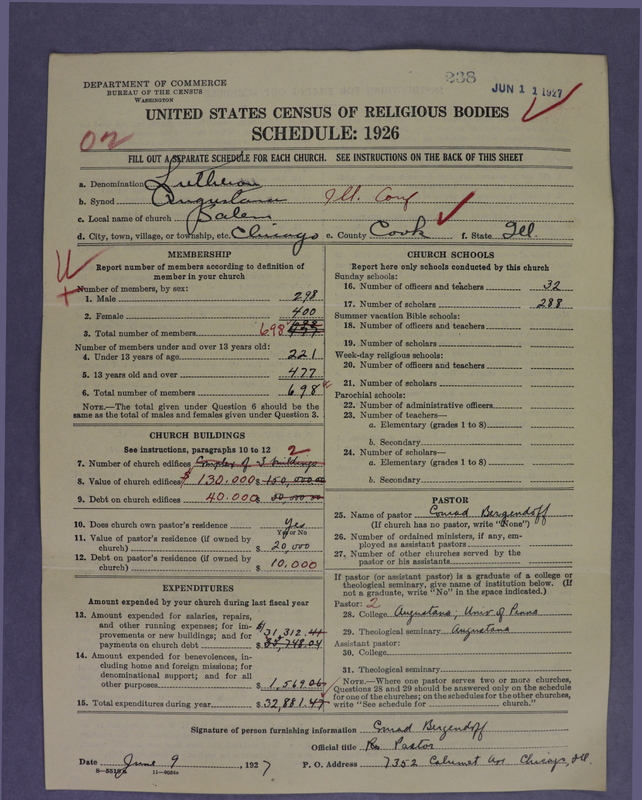 238
JUN 11 1927
DEPARTMENT OF COMMERCE
BUREAU OF THE CENSUS
WASHINGTON
UNITED STATES CENSUS OF RELIGIOUS BODIES
SCHEDULE: 1926
FILL OUT A SEPARATE SCHEDULE FOR EACH CHURCH. SEE INSTRUCTIONS ON THE BACK OF THIS SHEET
a. Denomination Lutheran
b. Synod Augustana Ill. Conf
c. Local name of church Salem
d. City, town, village, or township, etc. Chicago e. County Cook f. State Ill.
MEMBERSHIP
Report number of members according to definition of
member in your church
Number of members, by sex:
1. Male 298
2. Female 400
3. Total number of members 698
Number of members under and over 13 years old:
4. Under 13 years of age 221
5. 13 years old and over 477
6. Total number of members 698
NOTE.—The total given under Question 6 should be the
same as the total of males and females given under Question 3.
CHURCH BUILDINGS
See instructions, paragraphs 10 to 12 2
7. Number of church edifices Complex of 3 buildings
8. Value of church edifices $ 130.000 $ 150,000.00
9. Debt on church edifices 40.000 $
10. Does church own pastor's residence Yes
Yes or No
11. Value of pastor's residence (if owned by
church) $ 20,000
12. Debt on pastor's residence (if owned by
church) $ 10,000
EXPENDITURES
Amount expended by your church during last fiscal year
13. Amount expended for salaries, repairs,
and other running expenses; for im-
provements or new buildings; and for
payments on church debt $ 31,312.41
14. Amount expended for benevolences, in-
cluding home and foreign missions; for
denominational support; and for all
other purposes $ 1,569.06
15. Total expenditures during year $ 32,881.47
CHURCH SCHOOLS
Report here only schools conducted by this church
Sunday schools:
16. Number of officers and teachers 32
17. Number of scholars 288
Summer vacation Bible schools:
18. Number of officers and teachers
19. Number of scholars
Week-day religious schools:
20. Number of officers and teachers
21. Number of scholars
Parochial schools:
22. Number of administrative officers
23. Number of teachers—
a. Elementary (grades 1 to 8)
b. Secondary
24. Number of scholars—
a. Elementary (grades 1 to 8)
b. Secondary
PASTOR
25. Name of pastor Conrad Bergendoff
(If church has no pastor, write "None")
26. Number of ordained ministers, if any, em-
ployed as assistant pastors
27. Number of other churches served by the
pastor or his assistants
If pastor (or assistant pastor) is a graduate of a college or
theological seminary, give name of institution below. (If
not a graduate, write "No" in the space indicated.)
Pastor: 2
28. College Augustana; Univ. of Penna
29. Theological seminary Augustana
Assistant pastor:
30. College
31. Theological seminary
NOTE.—Where one pastor serves two or more churches,
Questions 28 and 29 should be answered only on the schedule
for one of the churches; on the schedules for the other churches,
write "See schedule for church."
Signature of person furnishing information Conrad Bergendoff
Official title Pastor
Date June 9, 1927 P. O. Address 7352 Calumet Ave Chicago, Ill.